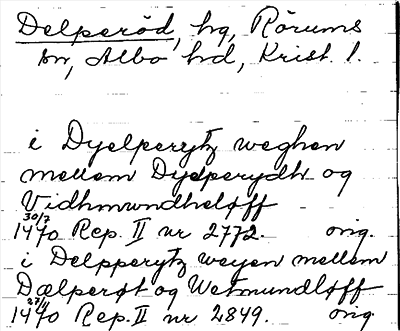 Delperöd, hg, Rörums
sn, Albo hd, Krist. l.
i Dyelperytz weghen
mellem Dyelperydh og
Vidhmundheløff
30/7
1470 Rep. II nr 2772. orig.
i Delpperytz weyen mellem
Dælperøt og Wetmundløff
27/11
1470 Rep. II nr 2849. orig